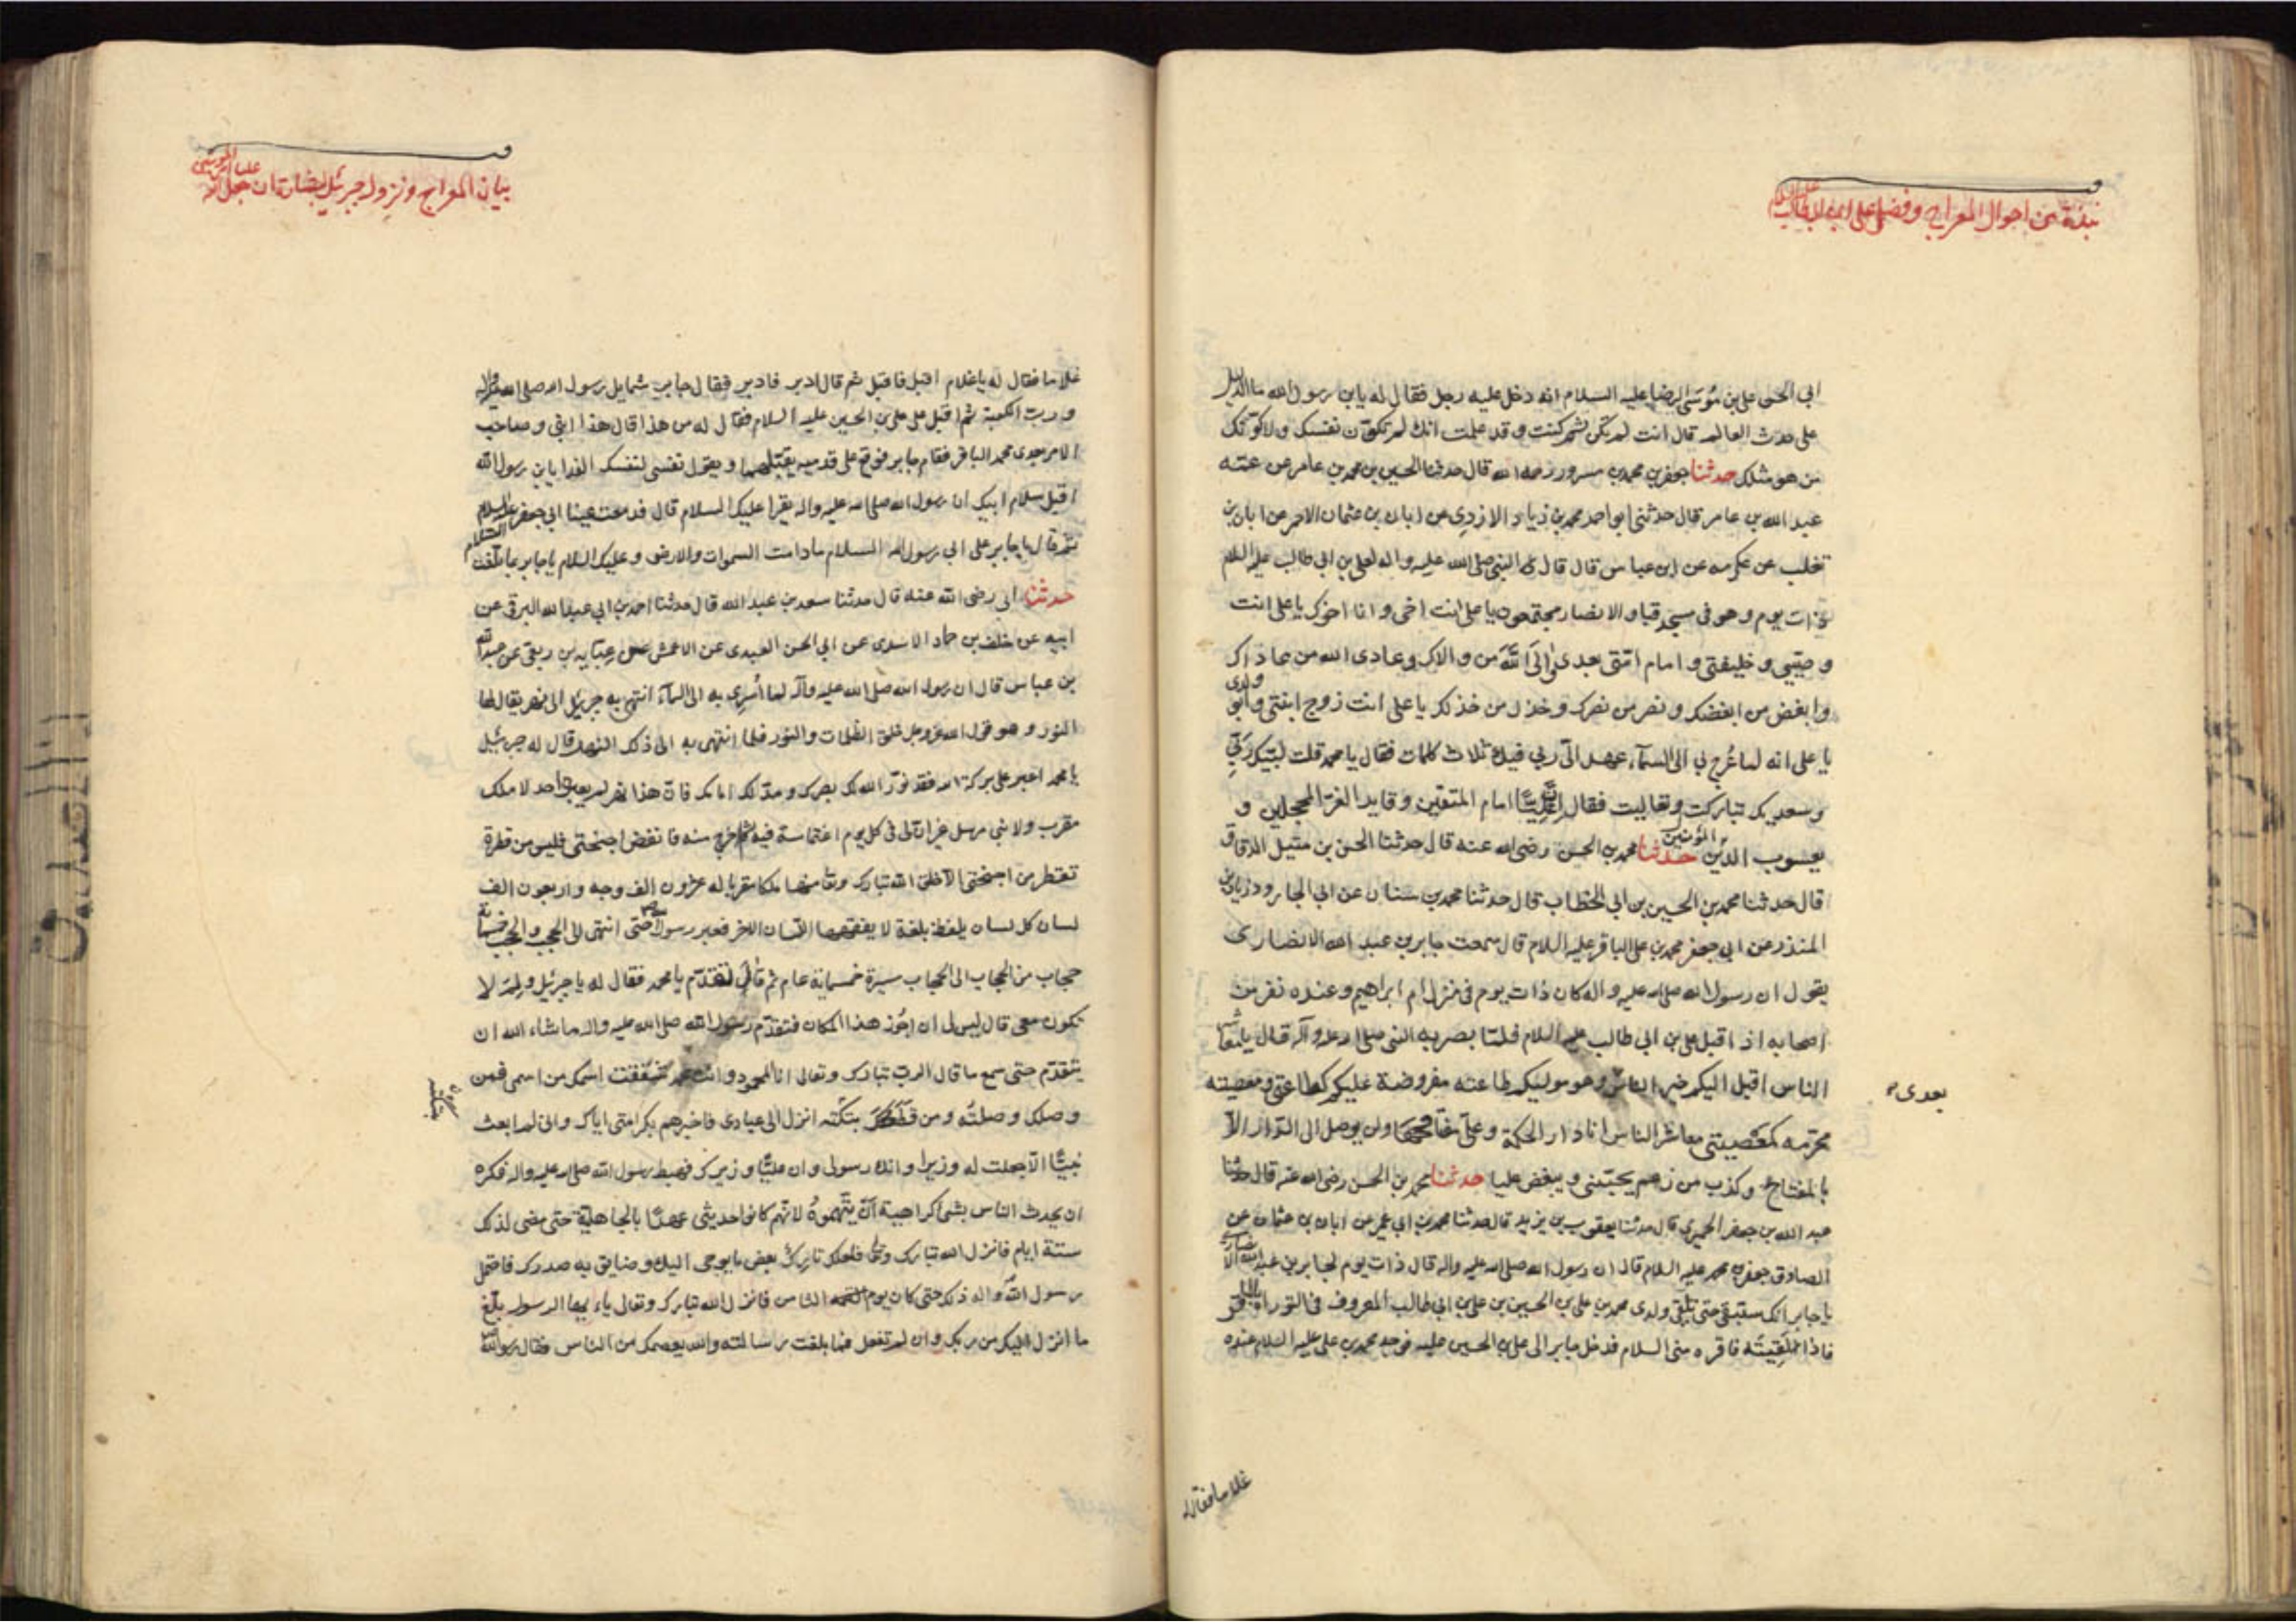 نبذة من احوال المعراج وفضل علی ابن ابی طالب علیه السلام
ابي الحسن علي بن مُوسَى الرضا عليه السلام انه دخل عليه رجل فقال له يا بن رسول الله ما الدليل
على حدث العالم قال انت لم تكن ثم كنت وقد علمت انك لم تكوّن نفسك ولا كوّنك
من هو مثلك حدثنا جعفر بن محمد بن مسرور رحمه الله قال حدثنا الحسين بن محمد بن عامر عن عمّه
عبد الله بن عامر قال حدثني ابو احمد محمد بن زياد الازدي عن ابان بن عثمان الاحمر عن ابان بن
تغلب عن عكرمه عن ابن عباس قال قال النبي صلى الله عليه واله لعلي بن ابي طالب عليه السلام
ذات يوم وهو في مسجد قبا والانصار مجتمعون يا علي انت اخي وانا اخوك يا علي انت
وصيّي وخليفتي وامام امّتي بعدي والَى اللّهَ من والاك وعادى الله من عاداك
وابغض من ابغضك ونصر من نصرك وخذل من خذلك يا علي انت زوج ابنتي وابو ولدي
يا علي انه لما عُرج بي الى السمآء عهد الّي ربي فيك ثلاث كلمات فقال يا محمد قلت لبّيك رَبّيِ
وسعديك تباركت وتعاليت فقال اِنّ عَلِيّاً امام المتقين وقايد الغرّ المحجلين و
يعسوب المؤمنين حدثنا محمد بن الحسن رضى الله عنه قال حدثنا الحسن بن متيل الدقاق
قال حدثنا محمد بن الحسين بن ابي الخطاب قال حدثنا محمد بن سنان عن ابي الجارود زياد بن
المنذر عن ابي جعفر محمد بن علي الباقر عليه السلام قال سمعت جابر بن عبد الله الانصاري
يقول ان رسول الله صلى الله عليه واله كان ذات يوم في منزل ام ابراهيم وعنده نفر من
اصحابه اذ اقبل علي بن ابي طالب عليه السلام فلمّا بصر به النبي صلى الله عليه وآله قال يا معاشر
الناس اقبل اليكم خير الناس بعدى وهو موليكم طاعته مفروضة عليكم كطاعتي ومعصيته
محرّمه كمَعْصِيتي معاشر الناس انا دار الحكمة وعليّ مفتاحها ولن يوصل الى الدّار الاّ
بالمفتاح وكذب من زعم يحبّني ويبغض عليا حدثنا محمد بن الحسن رضى الله عنه قال حدثنا
عبد الله بن جعفر الحميري قال حدثنا يعقوب بن يزيد قال حدثنا محمد بن ابي عمير عن ابان بن عثمان عن
الصادق جعفر بن محمد عليه السلام قال ان رسول الله صلى الله عليه واله قال ذات يوم لجابر بن عبد الله الانصاري
يا جابر انك ستبقى حتى تلقى ولدي محمد بن علي بن الحسين بن علي بن ابي طالب المعروف في التوراة بالباقر
فاذا لَقِيتَه فاقره مني السلام فدخل جابر الى علي بن الحسين عليه فوجد محمد بن علي عليه السلام عنده
غلاما فقال له
بيان المعراج ونزول جبرئيل
غلاما فقال له يا غلام اقبل فاقبل ثم قال ادبر فادبر فقال جابر شمايل رسول الله صلى الله عليه واله
ورب الكعبة ثم اقبل على علي بن الحسين عليه السلام فقال له من هذا قال هذا ابني وصاحب
الامر بعدي محمد الباقر فقام جابر فوقع على قدميه يقبّلهما ويقول نفسي لنفسك الفدا يا بن رسول الله
اقبل سلام ابيك ان رسول الله صلى الله عليه واله يقرا عليك السلام قال فدمعت عينا ابي جعفر عليه السلام
ثم قال يا جابر على ابي رسول الله السلام مادامت السموات والارض وعليك السلام يا جابر بما بلّغت السلام
حدثنا ابي رضى الله عنه قال حدثنا سعد بن عبد الله قال حدثنا احمد بن ابي عبد الله البرقي عن
ابيه عن خلف بن حماد الاسدي عن ابي الحسن العبدي عن الاعمش عن عباية بن ربعي عن عبد الله
بن عباس قال ان رسول الله صلى الله عليه وآله لما اُسري به الى السمآء انتهى به جبرئيل الى نهر يقال لها
النور وهو قول الله عزوجل خلق الظلمات والنور فلما انتهى به الى ذلك النهر قال له جبرئيل
يا محمد اعبر على بركة الله فقد نوّر الله لك بصرك ومدّ لك امامك فانّ هذا نهر لم يعبره احد لا ملك
مقرب ولا نبي مرسل غير ان لي في كل يوم اغتماسة فيه ثم اخرج منه فانفض اجنحتي فليس من قطرة
تقطر من اجنحتي الاّ خلق الله تبارك وتعالى منها ملكا مقربا له عشرون الف وجه واربعون الف
لسان كل لسان يلفظ بلغة لا يفقهها اللسان الاخر فعبر رسول الله حتى انتهى الى الحجب والحجب خمسمائة
حجاب من الحجاب الى الحجاب مسيرة خمسمائة عام ثم قال لي تقدّم يا محمد فقال له يا جبرئيل ولِمَ لا
تكون معي قال ليس لي ان اجُوز هذا المكان فتقدّم رسول الله صلى الله عليه واله ما شاء الله ان
يتقدّم حتى سمع ما قال الرب تبارك وتعالى انا المحمود وانت محمد شققت اسمك من اسمي فمن
وصلك وصلتُه ومن قطعك بتكته انزل الى عبادي فاخبرهم بكرامتي اياك واني لم ابعث
نبيّاً الاّ جعلت له وزيرا وانك رسولي وان عليّاً وزيرك فهبط رسول الله صلى الله عليه واله فكره
ان يحدث الناس بشئ كراهية اَنْ يَتّهموهُ لانّهم كانوا حديثي عهدٍ بالجاهليّة حتى مضى لذلك
ستة ايام فانزل الله تبارك وتعالى فلعلك تاركٌ بعض ما يوحى اليك وضايق به صدرك فاحتمل
رسول اللّه واله ذلك حتى كان يوم الثامن فانزل الله تبارك وتعالى يا ءيها الرسول بلّغ
ما انزل اليك من ربك وان لم تفعل فما بلغت رسالته والله يعصمك من الناس فقال رسول الله